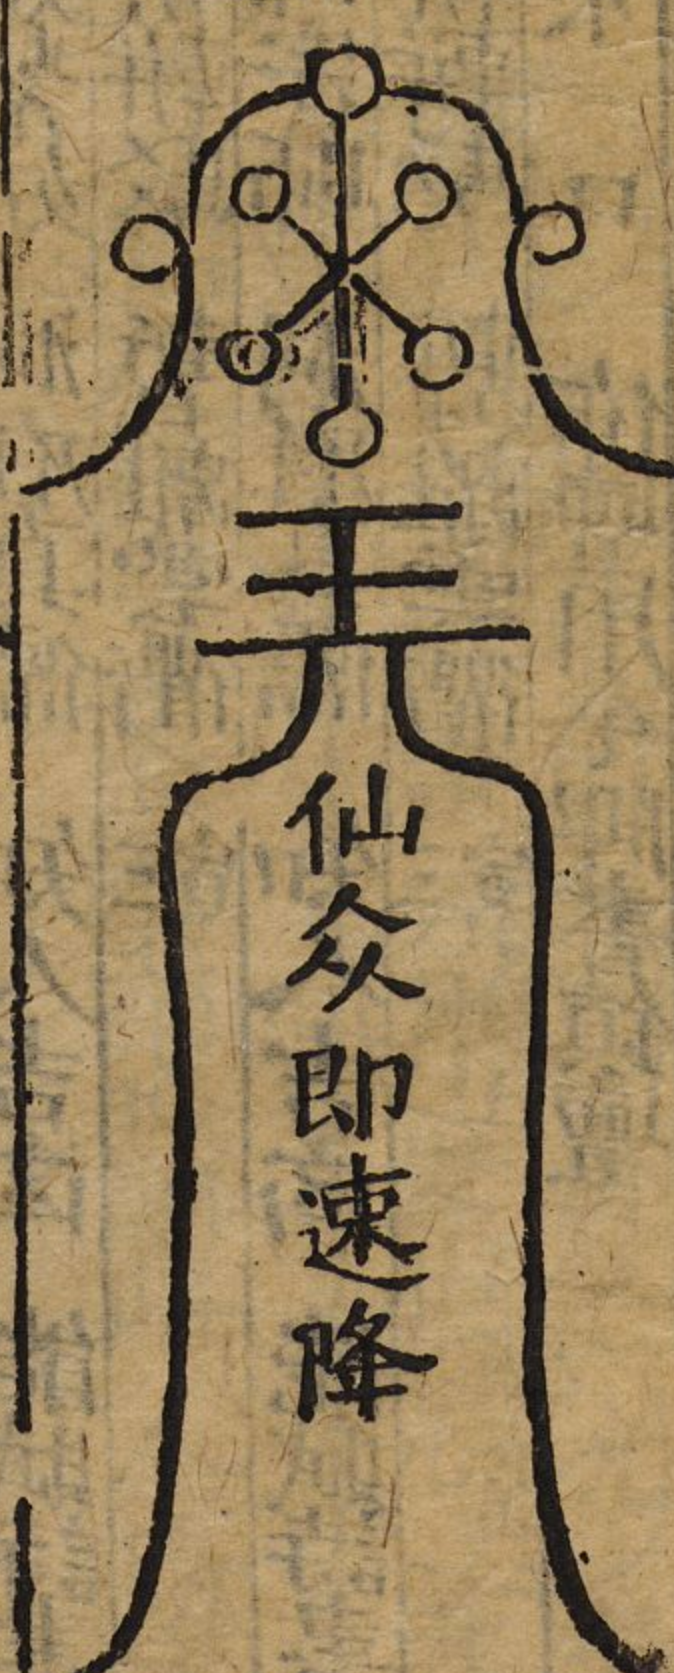 仙众即速降